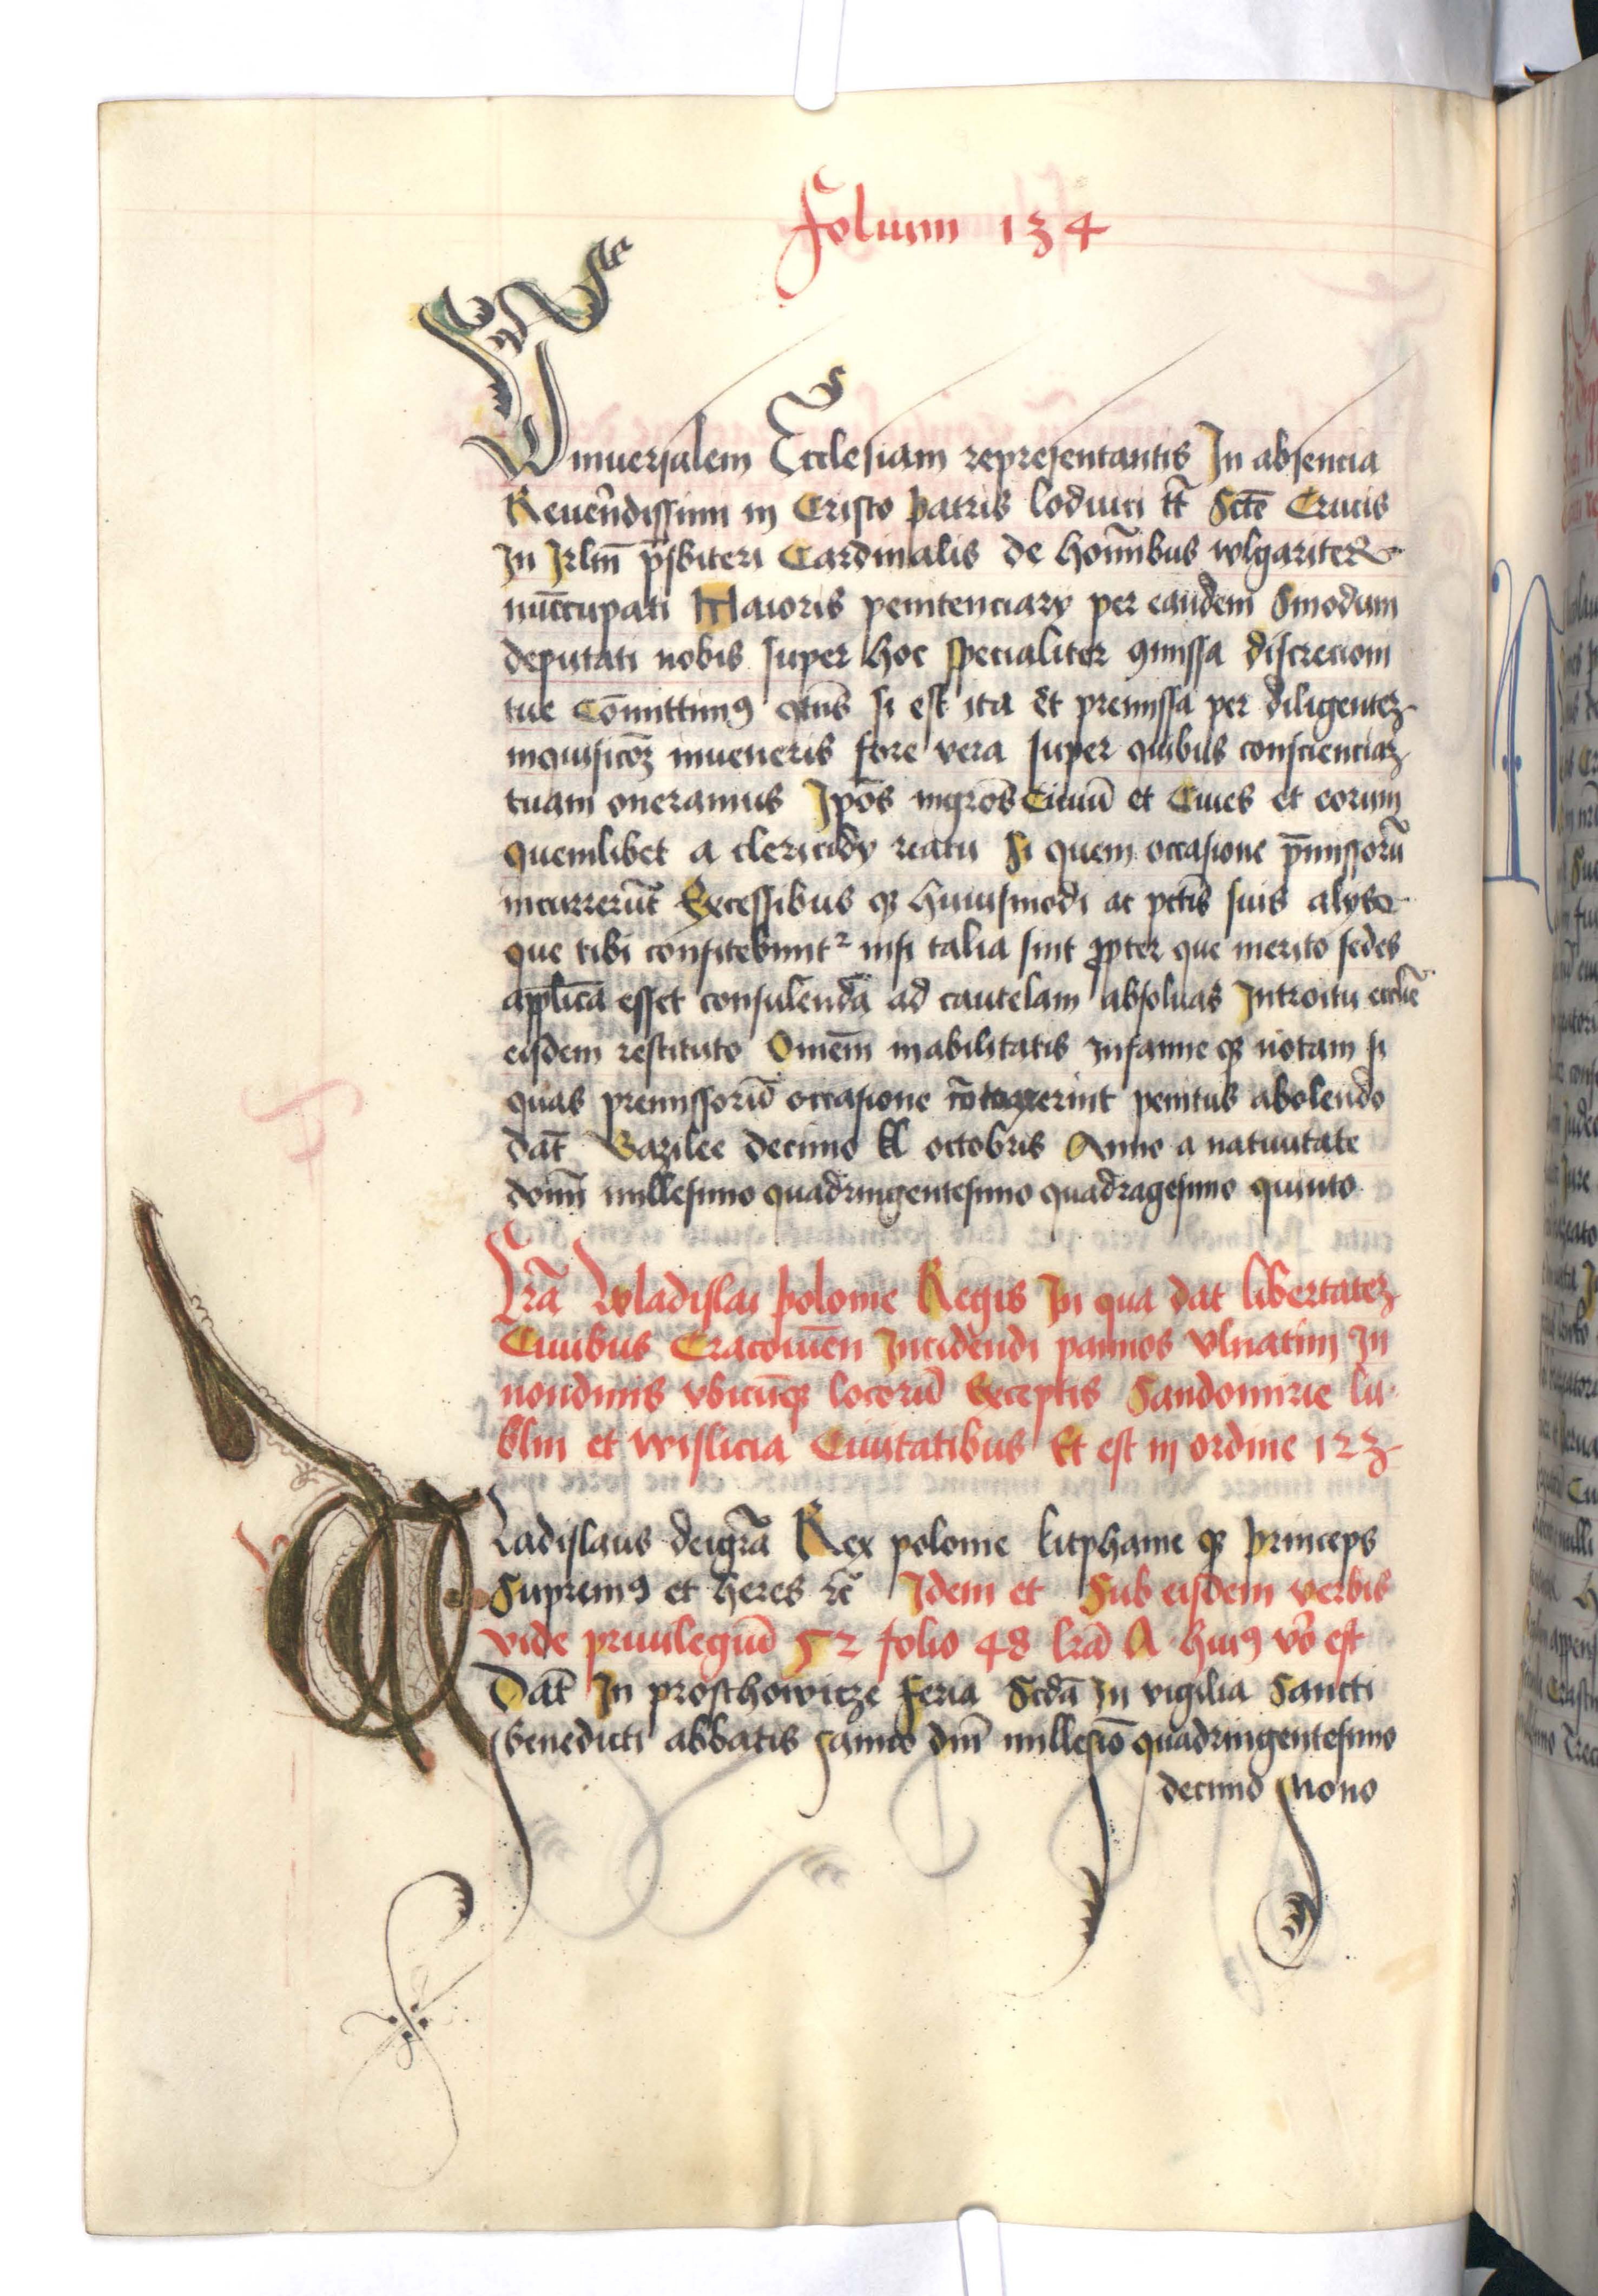 Folium 134
Vniuersalem Ecclesiam representantis In absencia
Reuerẽdissimi in Cristo patris loduici tt̃ Sctẽ Crucis
In Jrlm̃ p̃sbiteri Cardinalis de hom̃ibus wlgariter
nũccupati Maioris penitenciarÿ per eandem Sinodum
deputati nobis super hoc specialiter ꝯmissa discrecioni
tue Cõmittimꝰ qtũs si est ita et premissa per diligentez
inquisicõz inueneris fore vera super quibus conscienciaz
tuam oneramus Jpõs Ciuiũ et Ciues et eorum
quemlibet a clericidÿ reatu Si quem occasione p̃missorũ
incurrerũt Excessibus qꝫ huiusmodi ac pctĩs suis alÿs
que tibi confitebunt² nisi talia sint ꝓpter que merito sedes
applica᷈ esset consulenda ad cautelam absoluas Introitu eccliẽ
eisdem restituto Omẽm inabilitatis infamie qꝫ notam si
quas premissorũ occasione cõtraxerint penitus abolendo
dat᷈ Bazilee decimo kl octobris Anno a natiuitate
domĩ millesimo quadringentesimo quadragesimo quinto
Lr̃a Wladislai polonie Regis In qua dat libertatez
Ciuibus Cracouieñ Incidendi pannos vlnatim In
nondinis vbicũqꝫ locorũ Exceptis Sandomirie lu
blin et wislicia Ciuitatibus Et est in ordine 123
WLadislaus dei gr̃a Rex polonie litphanie qꝫ princeps
Supremꝰ et heres ꝛc̃ Idem et Sub eisdem verbis
vide priuilegiũ 52 folio 48 lr̃a A huiꝰ vo᷈ est
Dat᷈ In proschowicze feria Scdã In vigilia Sancti
Benedicti abbatis anno dnĩ millesiõ quadringentesimo
decimo Nono